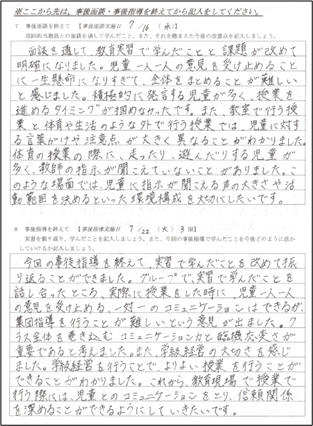 ※ここから先は、事後面談・事後指導を終えてから記入をしてください。
7 事後面談を終えて 【事後面談実施日 7/16 (水)】
巡回担当教員との面談を通して学んだこと、また、それを踏まえた今後の改善点を記入しましょう。
面談を通して、教育実習で学んだことと課題が改めて
明確になりました。児童一人一人の意見を受け止めることに
に一生懸命になりすぎて、全体をまとめることが難しい
と感じました。積極的に発言する児童が多く、授業を
進めるタイミングが掴めなかったです。また、教室で行う授
業と体育や生活のような外で行う授業では、児童に対す
る言葉がけや注意点が大きく異なることがわかりました。
体育の授業の際に、走ったり、遊んだりする児童が
多く、教師の指示が聞こえていないことがありました。こ
のような場面では、児童に指示が聞こえる声の大きさや活
動範囲を決めるといった環境構成を大切にしたいです。
8 事後指導を終えて 【事後指導実施日 7/22 (火) 3限】
実習を振り返り、学んだことを記入しましょう。また、今回の事後指導で学んだことを今後どのように活か
していけるか記入しましょう。
今回の事後指導を終えて、実習で学んだことを改めて振
り返ることができました。グループで、実習で学んだことを
話し合ったところ、実際に授業をした時に、児童一人一人
の意見を受け止める、一対一のコミュニケーションはできるが、
集団指導を行うことが難しいという意見が出ました。ク
ラス全体を巻き込むコミュニケーション力と臨機応変さが
重要であると考えました。また、学級経営の大切さを感じ
ました。学級経営を行うことで、よりよい授業を行うことが
できることがわかりました。これから、教育現場で授業で
行う際には、児童とのコミュニケーションをとり、信頼関係
を深めることができるようにしていきたいです。